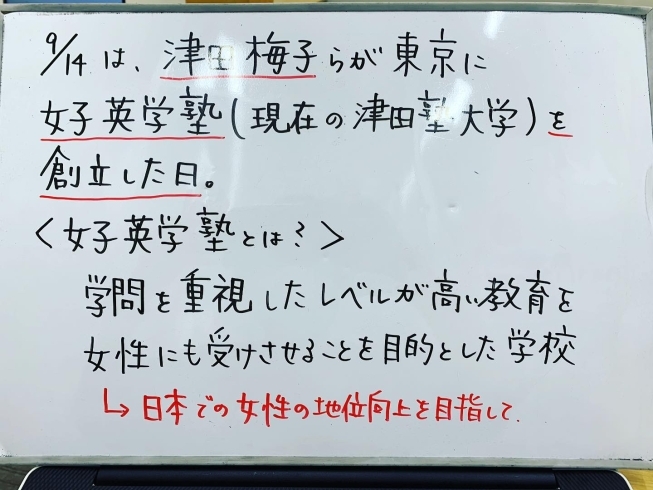 9/14は、津田梅子らが東京に
女子英学塾(現在の津田塾大学)を
創立した日。
<女子英学塾とは?>
学問を重視したレベルが高い教育を
女性にも受けさせることを目的とした学校
↳日本での女性の地位向上を目指して.